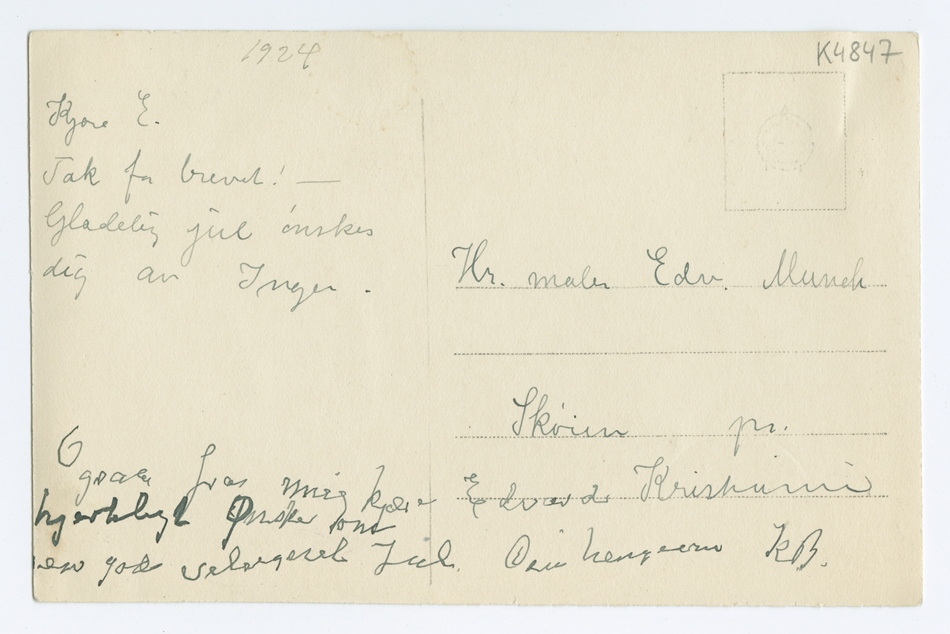 1924
K4847
Kjære E.
Tak for brevet! —
Glædelig jul ønskes
dig av Inger.
Hr. maler Edv. Munch
Skøien pr.
Kristiania
Ogsaa fra mig kjære Edvard
hjerteligt Ønske om
en god velsignet Jul. Din hengivne KB.